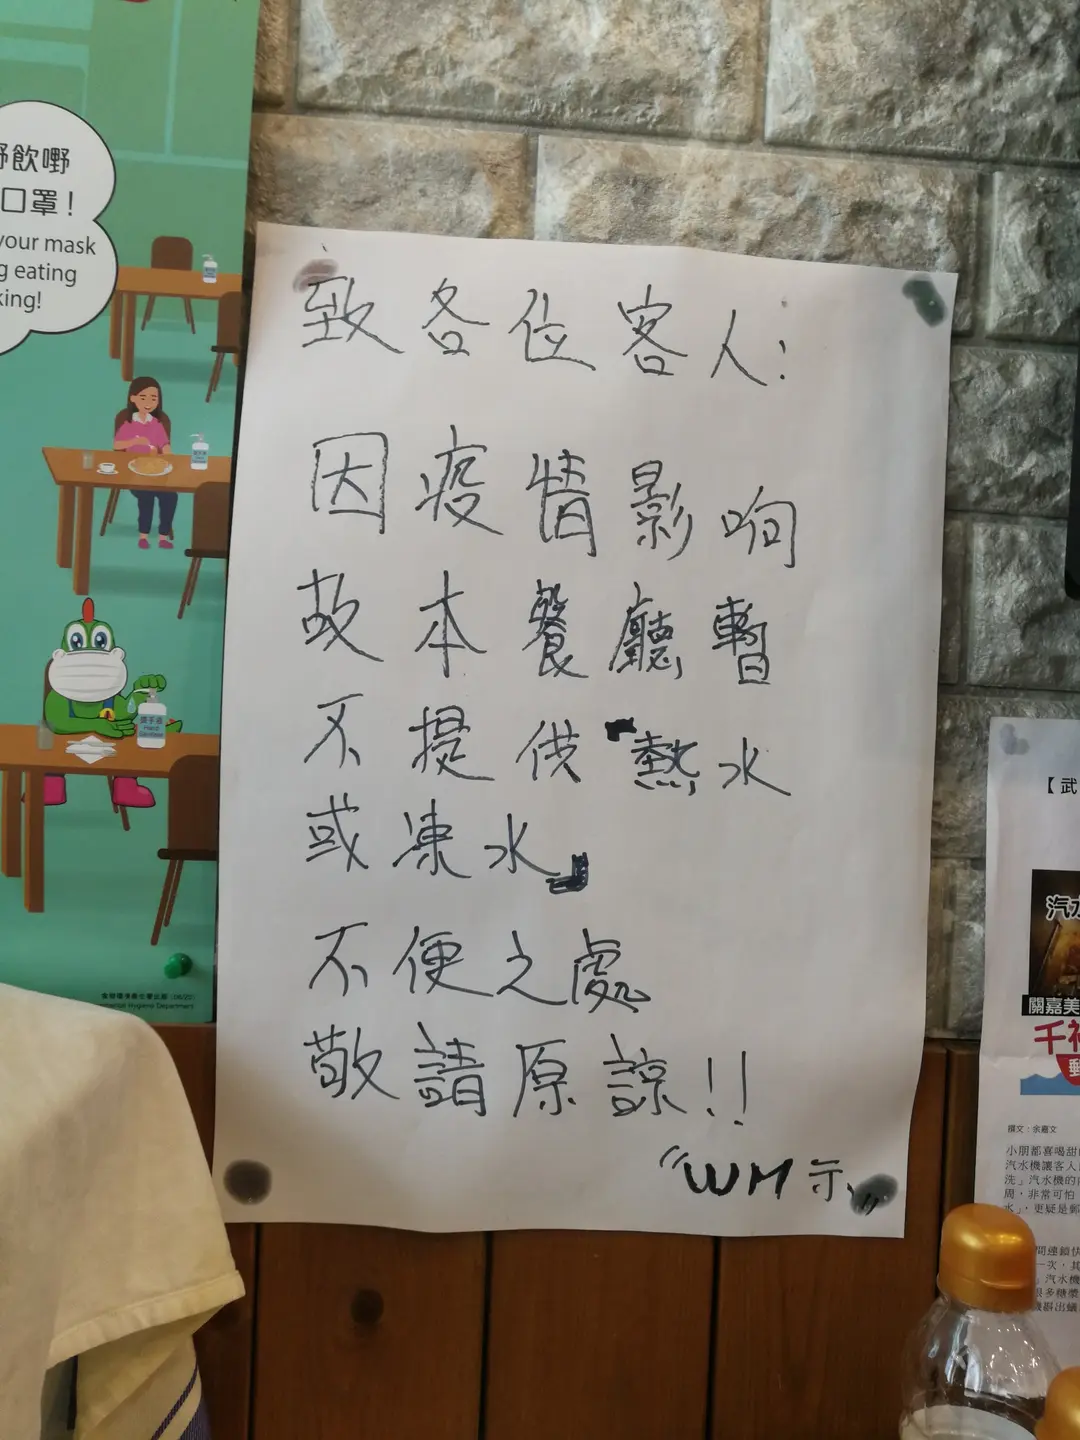 飲嘢
口罩！
your mask
eating
king!
洗手液
Hand
Sanitizer
致各位客人：
因疫情影响
故本餐廳暫
不提供「熱水
或凍水」
不便之處
敬請原諒！！
"WM 示"
【武
汽水
關嘉美
千禧
撰文：余嘉文
小朋都喜喝甜
汽水機讓客人
洗」汽水機的
周，非常可怕
水」，更疑是郵
間連鎖快
一次，其
」汽水機
很多糖漿
機斟出蟻